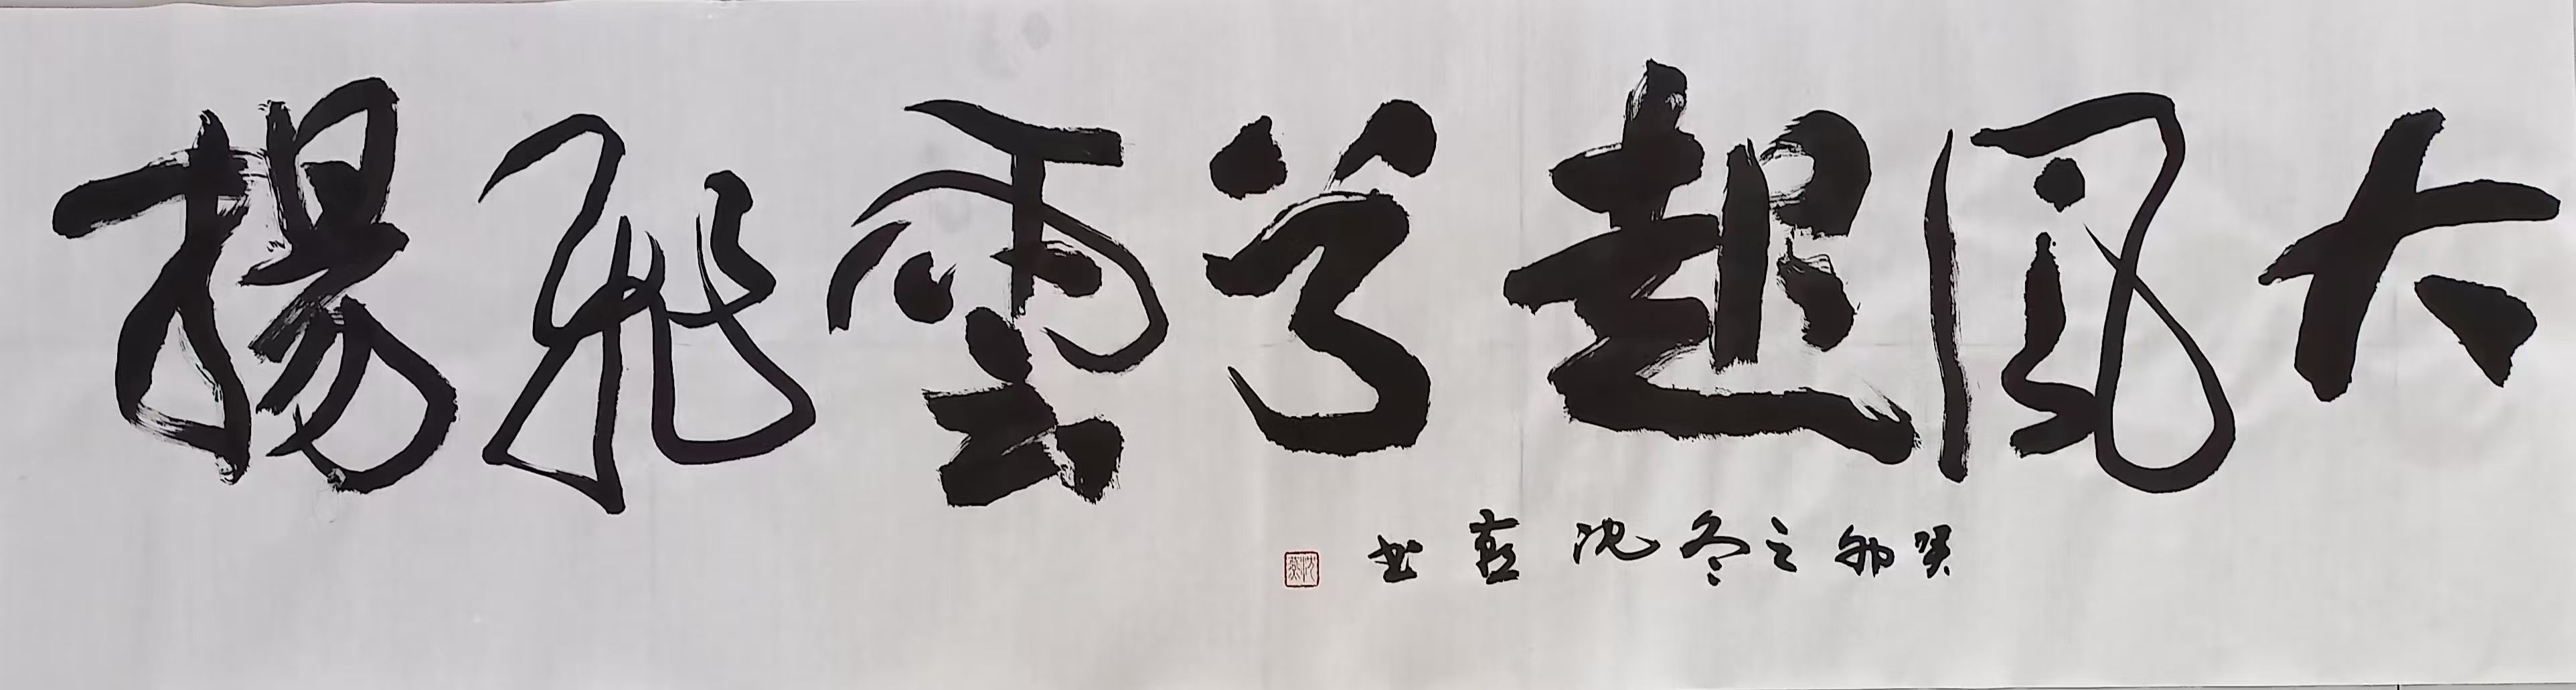 大風起兮雲飛揚
癸卯之冬沈燕书